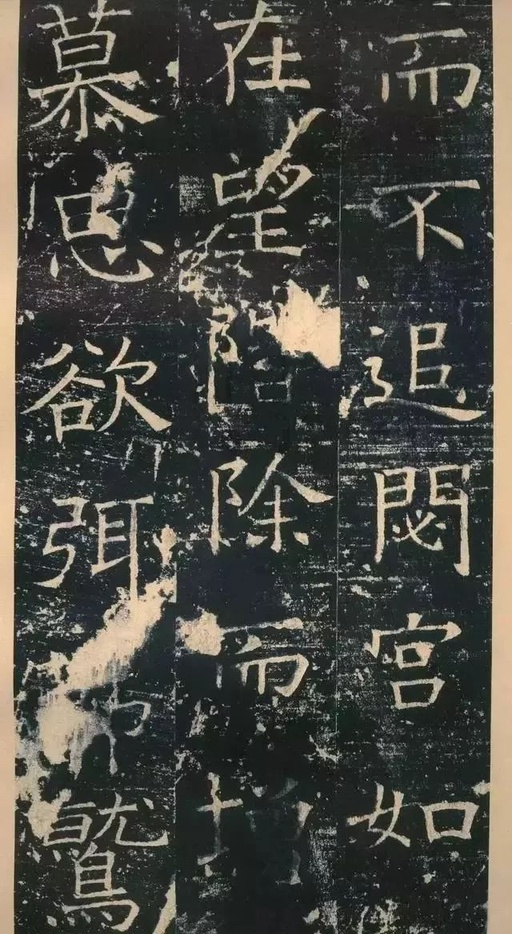 而不追閟宮如
在望階除而增
慕思欲弭鷲